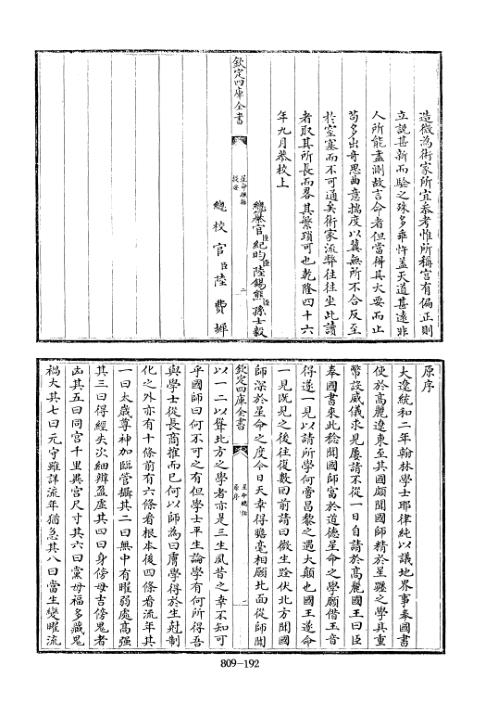 造微為術家所宜參考惟所稱宮有偏正則
立說甚新而驗之殊多乖忤蓋天道甚遠非
人所能盡測故言命者但當得其大要而止
苟多出奇思曲意揣度以冀無所不合反至
於窒塞而不可通矣術家流弊往往坐此讀
者取其所長而畧其繁瑣可也乾隆四十六
年九月恭校上
欽定四庫全書
星命總括
提要
二
總纂官臣紀昀臣陸錫熊臣孫士毅
總校官臣陸費墀
原序
大遼統和二年翰林學士耶律純以議地界事奉國書
使於高麗遼東至其國頗聞國師精於星躔之學具重
幣設威儀求見屢請不從一日自請於高麗國王曰臣
奉國書來此稔聞國師富於道德星命之學願借玉音
得遂一見以請所學何啻昌黎之遇大顛也國王遂命
一見既見之後往復數四前請曰微生跧伏北方聞國
師深於星命之度今日天幸得瞻毫相願北面從師聞
欽定四庫全書
星命總括
原序
一
以一二以聳北方之學者亦是三生風昔之幸不知可
乎國師曰何不可之有但學士平生論學有何所得吾
與學士從長商搉而已何以師為曰膚學得於生尅制
化之外亦有十條前有六條看根本後四條看流年其
一曰太歲尊神加臨管攝其二曰無中有曜弱處高强
其三曰得經失次細辨盈虚其四曰身傍母吉傍鬼者
凶其五曰同宫千里異宫尺寸其六曰黨母福多黨鬼
禍大其七曰元守雖詳流年猶急其八曰當生變曜流
809-192